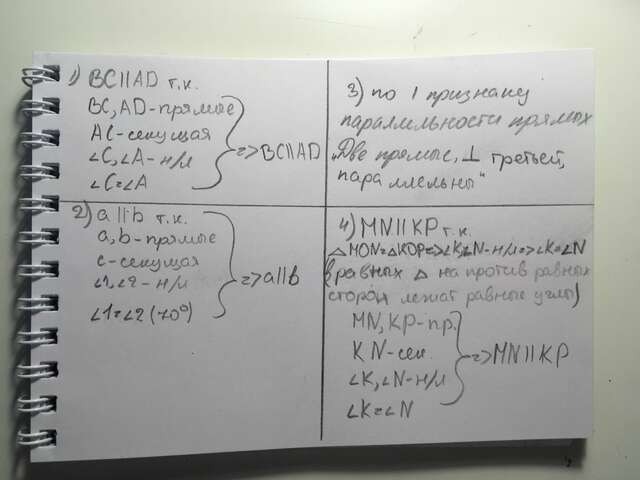 1) BC||AD т.к.
BC, AD-прямые
AC-секущая
∠C, ∠A-н/л
∠C=∠A
=>BC||AD
2) a||b т.к.
a, b-прямые
c-секущая
∠1, ∠2-н/л
∠1=∠2 (70°)
=>a||b
3) по 1 признаку
паралильности прямых
„Две прямые, ⊥ третьей,
параллельны"
4) MN||KP т.к.
△MON=△KOP=>∠K,∠N-н/л=>∠K=∠N
(в равных △ на против равных
сторон лежат равные углы)
MN, KP-пр.
KN-сек.
∠K, ∠N-н/л
∠K=∠N
=>MN||KP